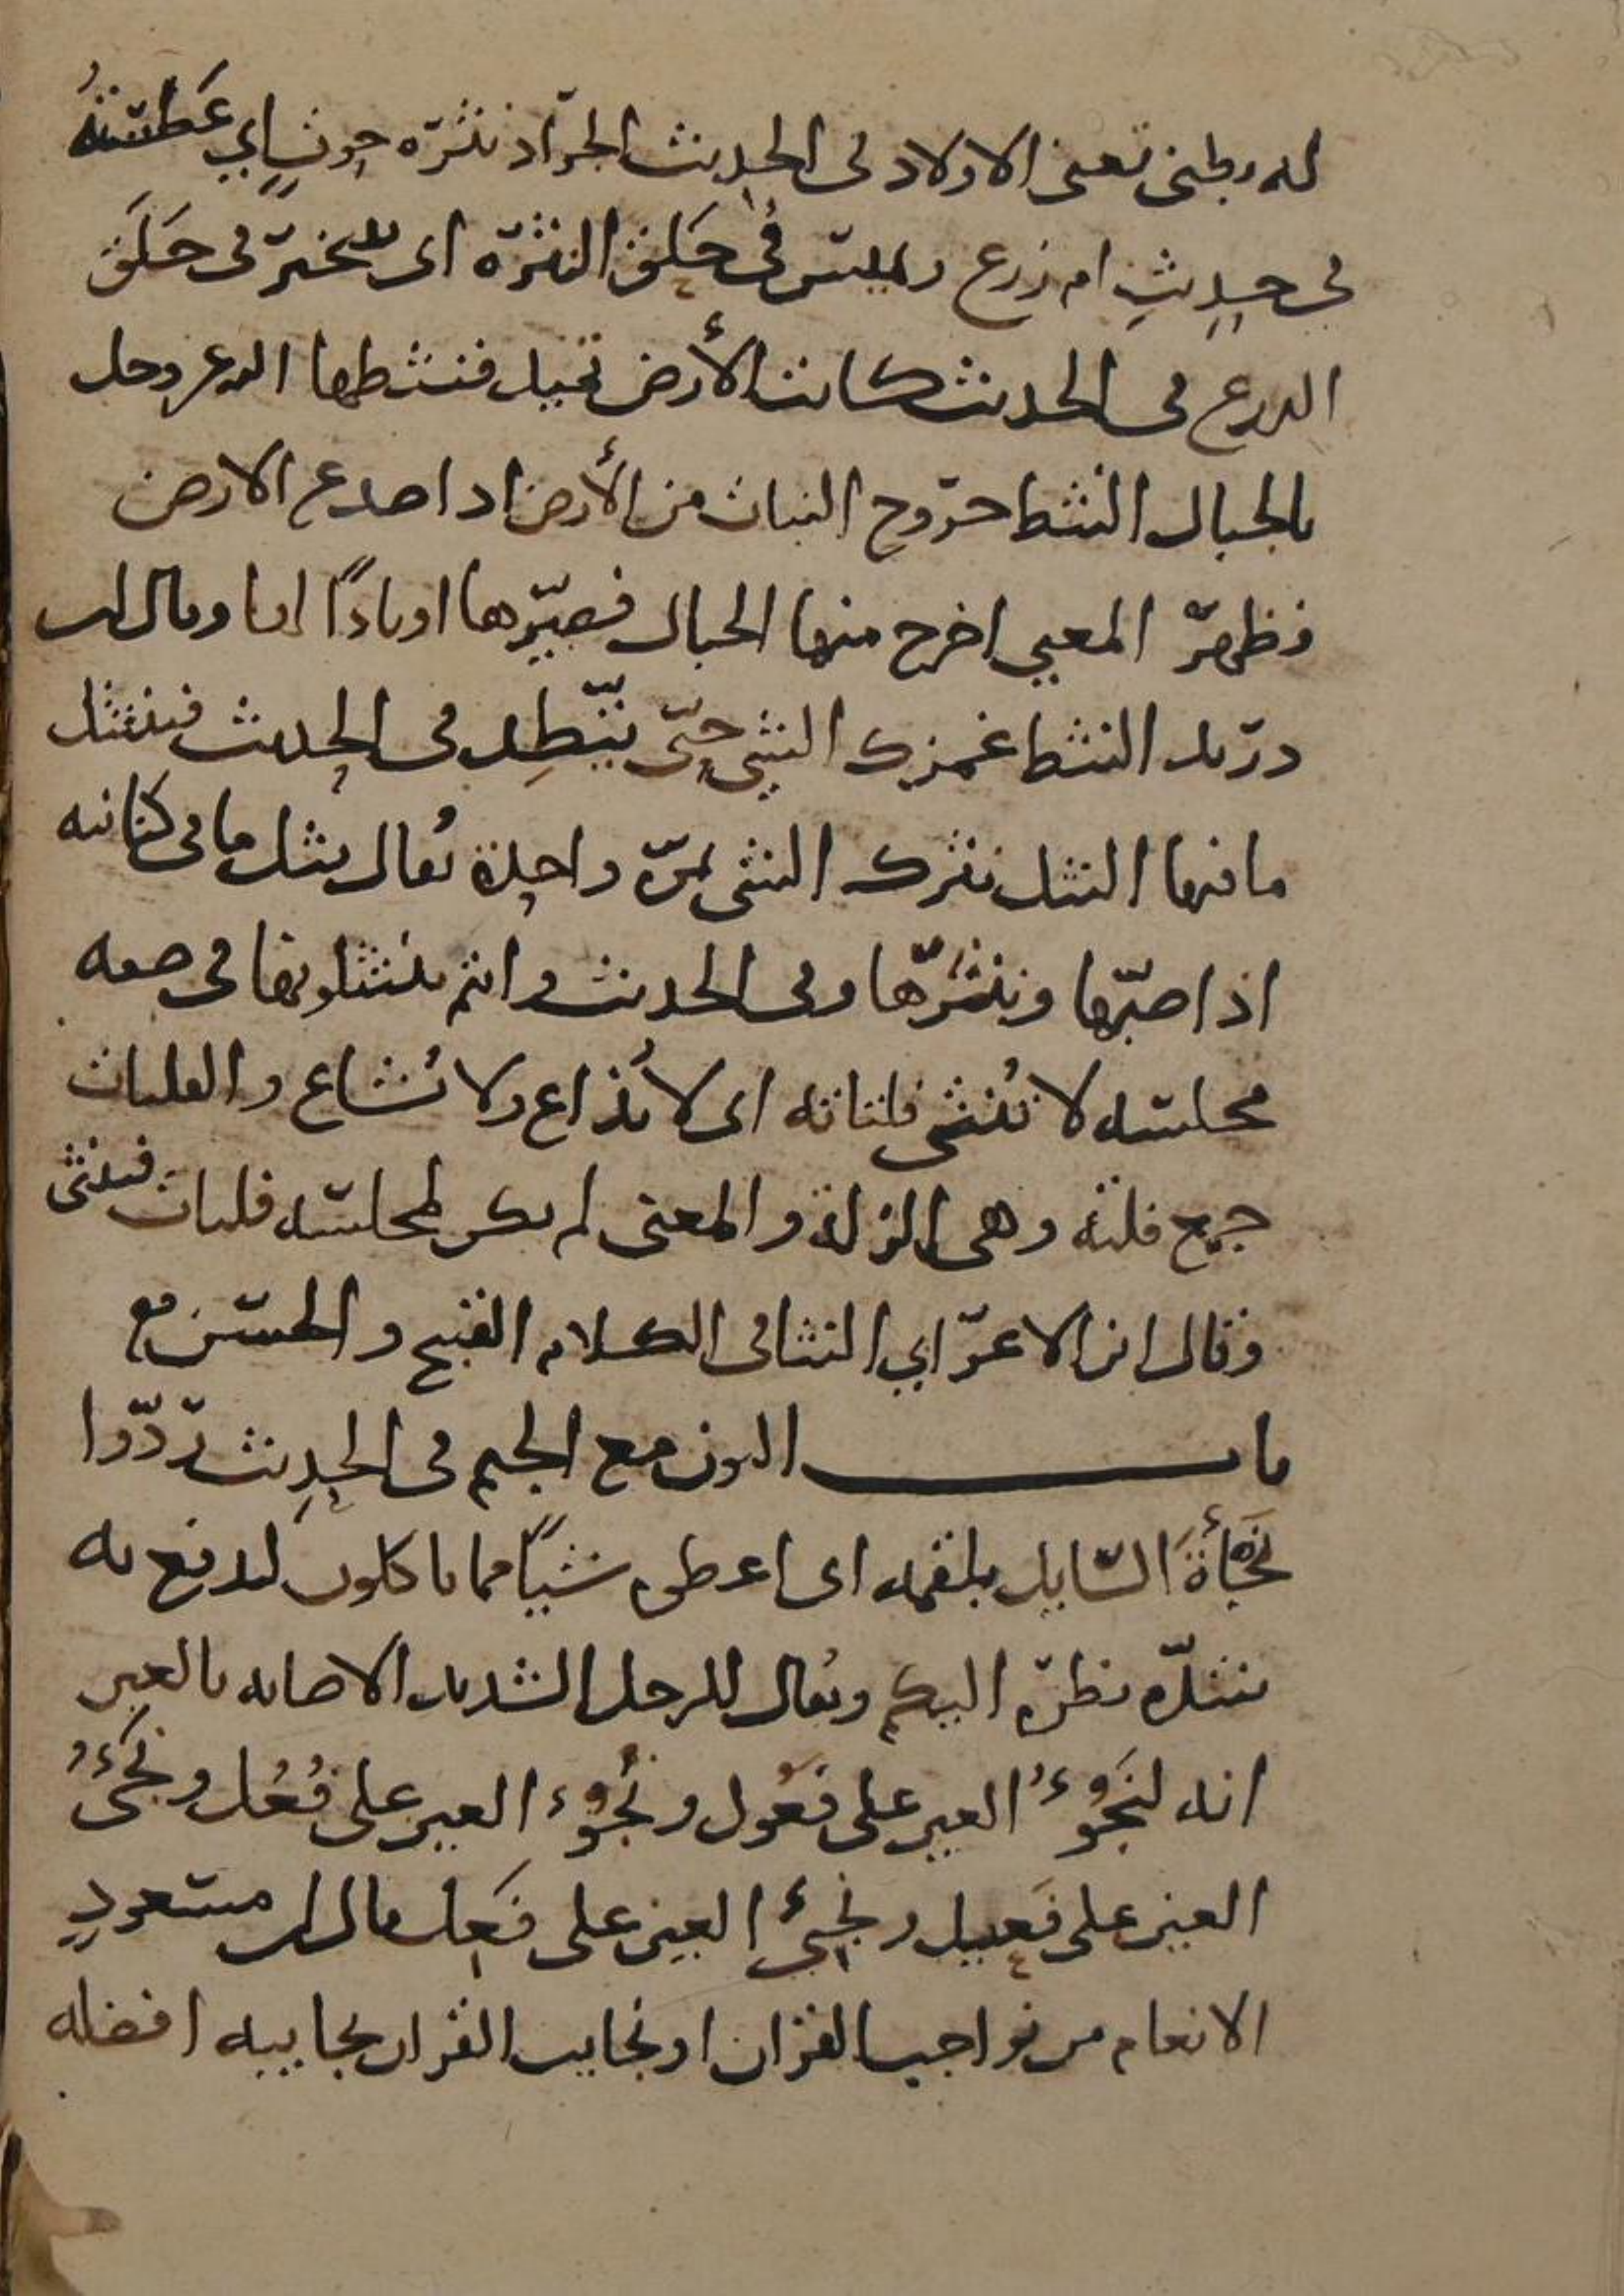 له بطني تعني الاولاد في الحديث الجراد نثرة حوت اي عطسته
في حديث ام زرع ويميس في حلق النثرة اي يتبختر في حلق
الدرع في الحديث كانت الأرض تميد فنثطها الله عز وجل
بالجبال النثط خروج النبات من الأرض اذا صدع الارض
فظهر المعني اخرج منها الجبال فصيّرها اوتادًا لها وقال ابن
دريد النثط غمزك الشي حتّى يثّطد في الحديث فينتثل
ما فيها النثل نثرك الشي بمرة واحدة يُقال نثل ما في كنانته
اذا صبّها ونثرها وفي الحديث وانتم تنتثلونها في صفة
مجلسه لا تُنثى فلتاته اي لا تُذاع ولا تُشاع والفلتات
جمع فلتة وهي الزلة والمعنى لم يكن لمجلسه فلتات فتنثى
وقال ابن الاعرابي النثا في الكلام القبيح والحسن مع
باب النون مع الجيم في الحديث ردّوا
نَجْأَةَ السّايل بلقمه اي اعطوه شيًا مما تاكلون لتدفع به
شدّة نظره اليكم ويُقال للرجل الشديد الاصابه بالعين
انه لنَجُوْءُ العين على فَعُول ونَجُوء العين على فُعُل ونَجِيءُ
العين على فَعِيل ونجِئُ العين على فَعِل قال ابن مسعودٍ
الانعام من نواجب القران او نجايب القران نجايبه افضله